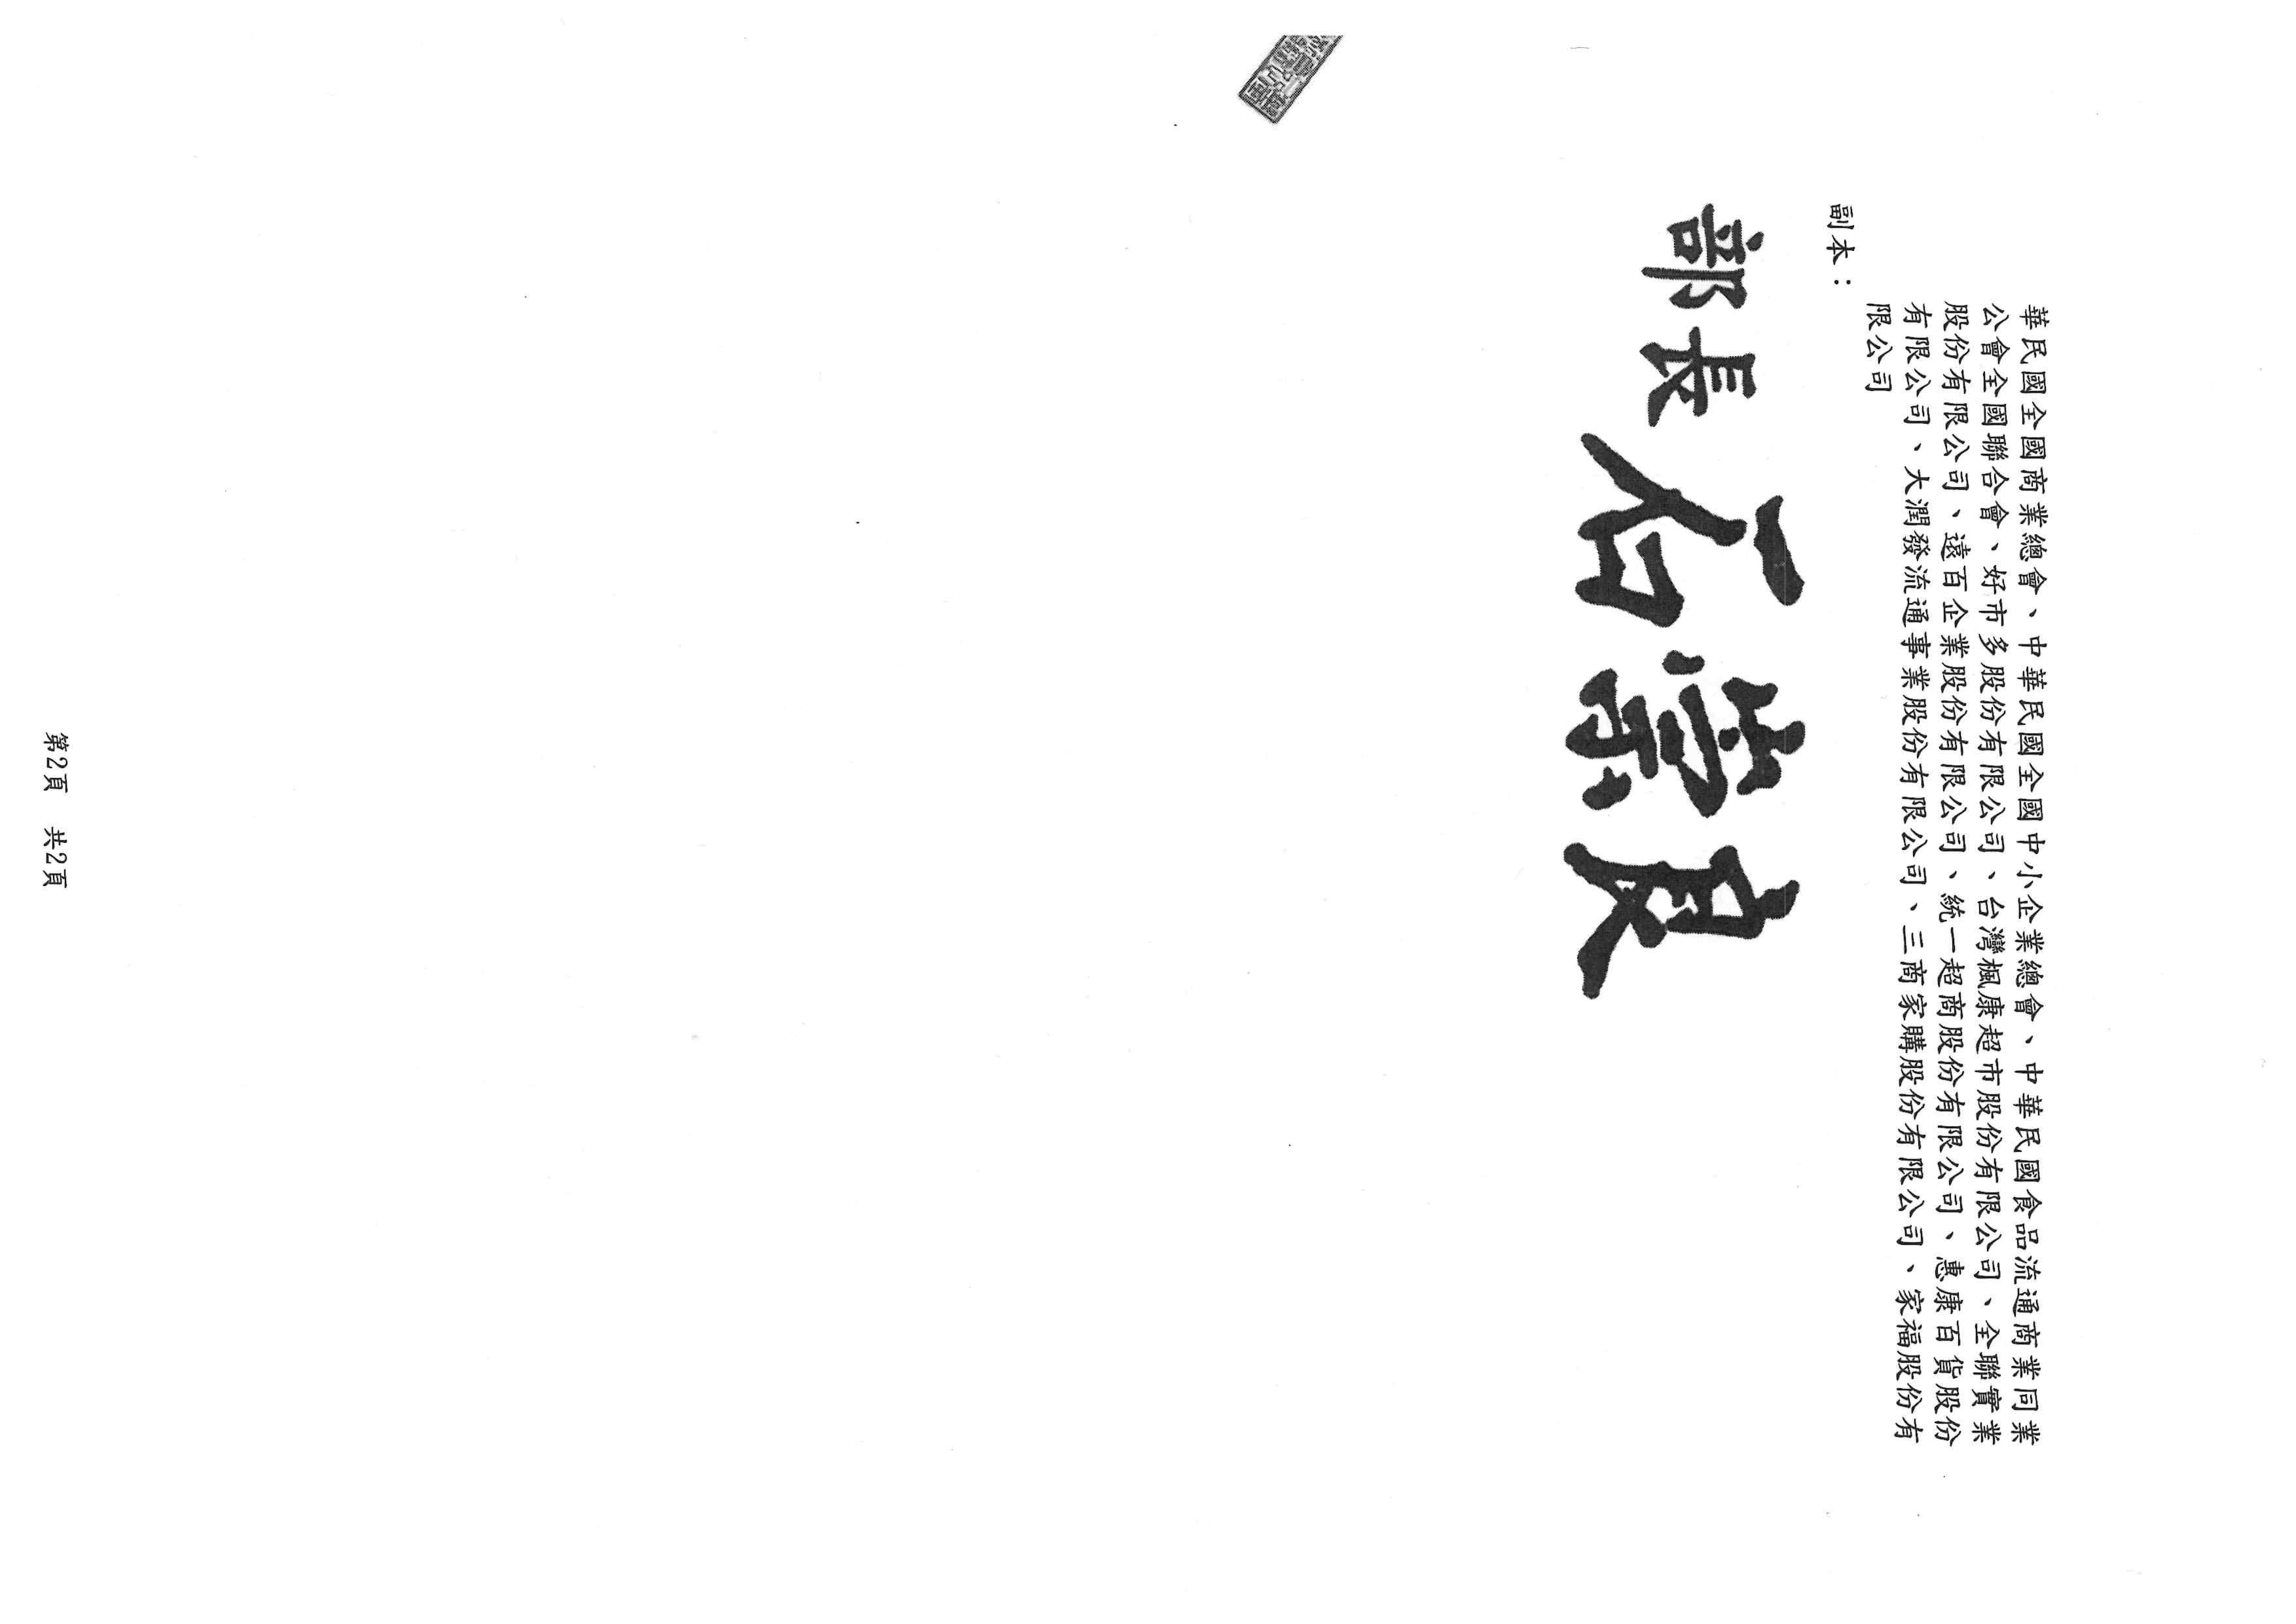 華民國全國商業總會、中華民國全國中小企業總會、中華民國食品流通商業同業
公會全國聯合會、好市多股份有限公司、台灣楓康超市股份有限公司、全聯實業
股份有限公司、遠百企業股份有限公司、統一超商股份有限公司、惠康百貨股份
有限公司、大潤發流通事業股份有限公司、三商家購股份有限公司、家福股份有
限公司
副本：
部長石崇良
第2頁 共2頁